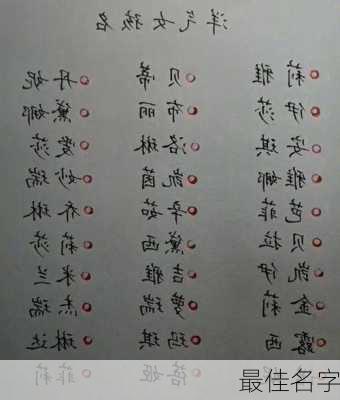 洋气女孩名
莉雅 贝蒂 丹妮
伊莎 布丽 黛娜
安琪 洛琳 爱莎
雅娜 凯茵 妙瑞
芭菲 朵茹 乔琳
贝拉 黛西 莉莎
凯伊 吉雅 米兰
金莉 萝瑞 杰瑞
露西 玛琪 琳达
蓓姬 菲莉
最佳名字